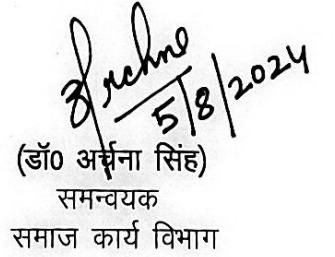 Archna
5/8/2024
(डॉ0 अर्चना सिंह)
समन्वयक
समाज कार्य विभाग